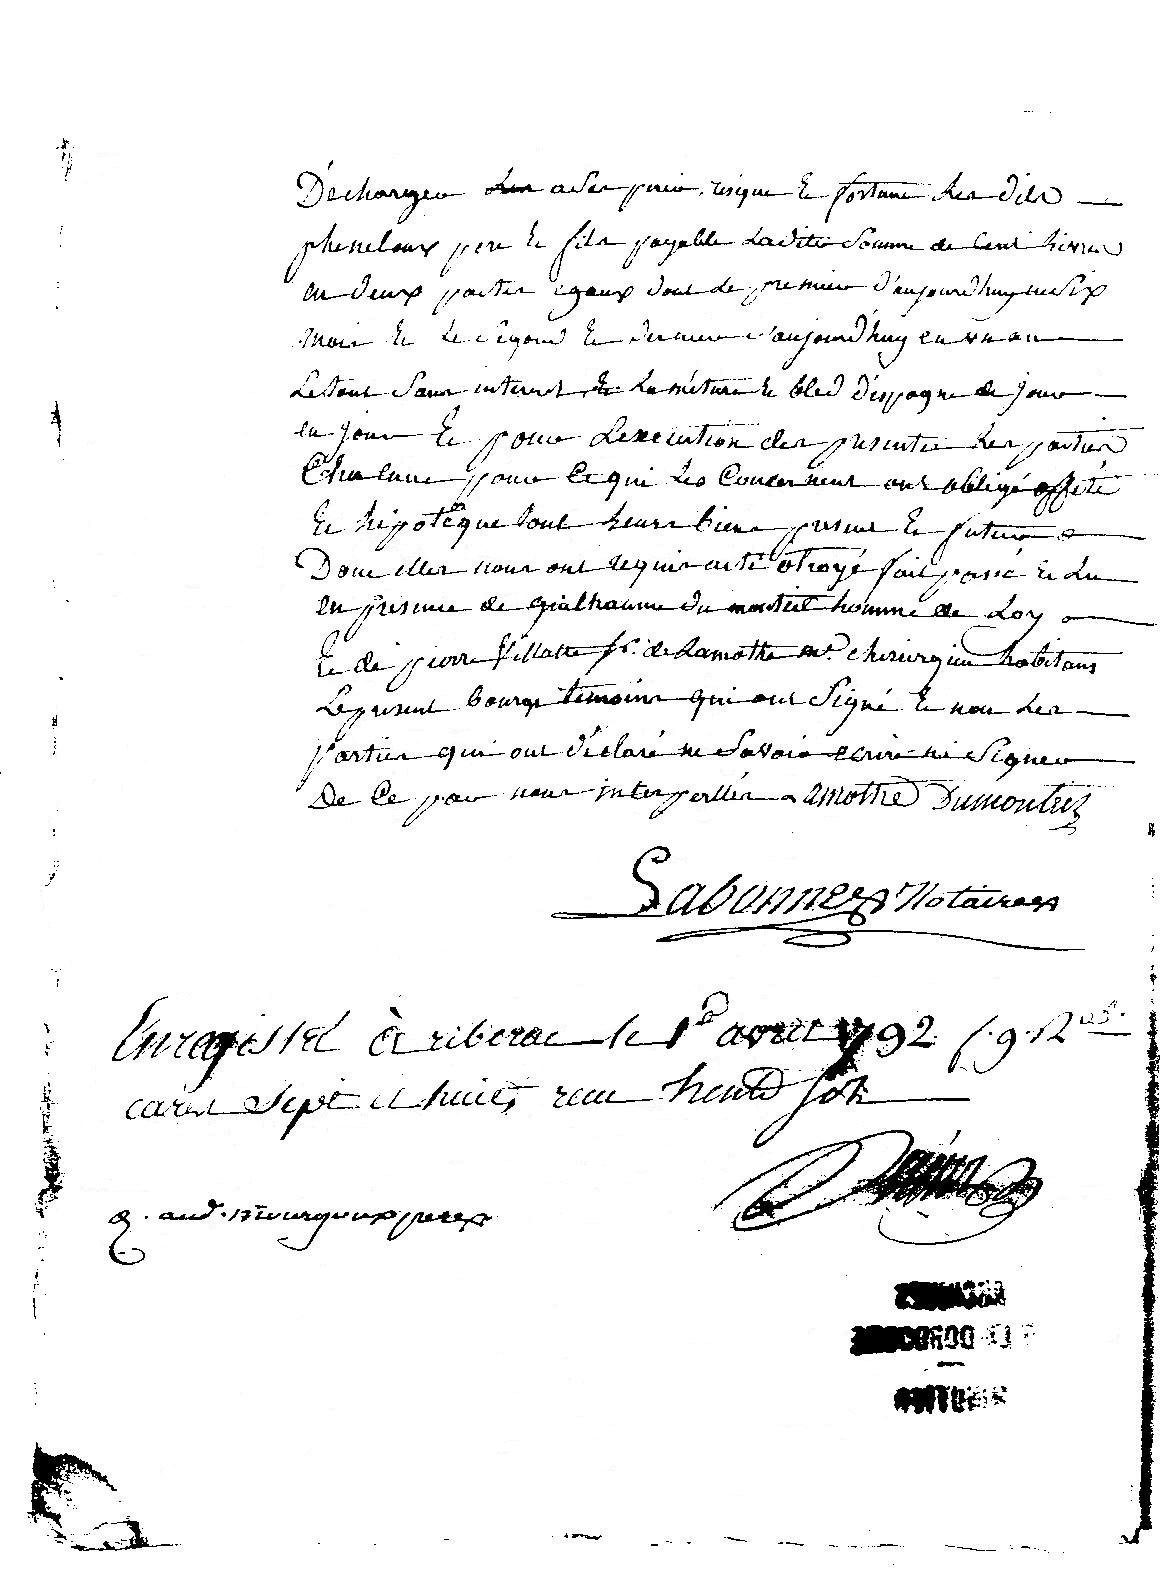 Déchargeu a Ses perin, risque Et fortune des dits
pheneloux pere Et fils payable Ladite Somme de Cent livres
en deux partes egaux dont de premiere d'aujourdhuy en Six
mois Et Le Segond Et derniere d'aujourdhuy en un an
Letout Sans interest Et La méture Et bled d'espagne de jour
en jour Et pour Lexecution des presente Les parties
Chacune pour Ce qui Les Concernent ont obligé affeté
Et hipotéque tout leurs biens presens Et futurs
Dont elles nous ont requis acte otroyé fait passé Et Lu
en presence de guilhaume du monteil homme de Loy
Et de pierre Villatte sr. de Lamothe me. chirurgien habitans
Le present bourg temoins qui ont Signé Et non Les
parties qui ont déclaré ne Savoir ecrire ni Signer
De Ce par nous interpellés Lamothe Dumonteilh
Labonne Notaire
Enregistré à riberac le 1er avril 1792 f. 9. Ros.
cases Sept et huit, recu trente Sols
and. Mourgoux pere